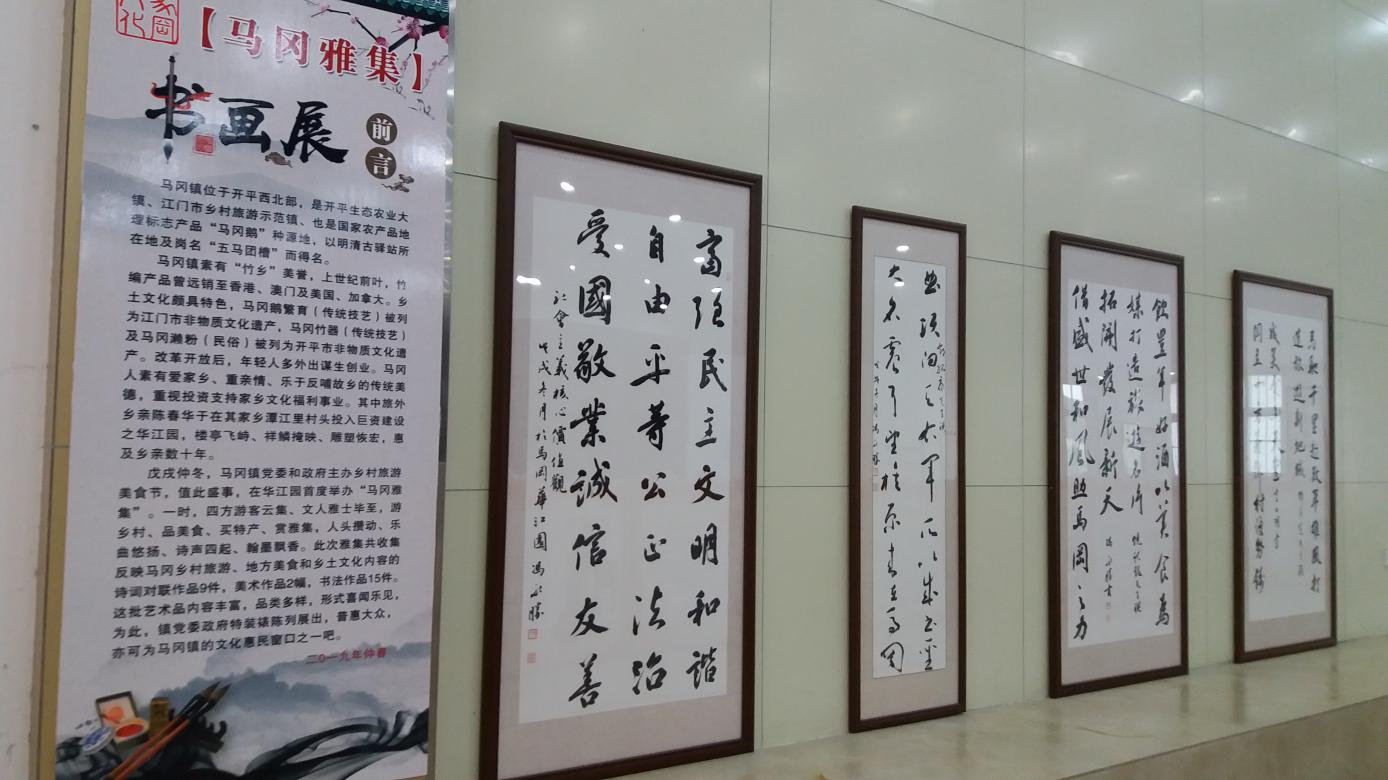 【马冈雅集】
书画展
前言
马冈镇位于开平西北部，是开平生态农业大
镇、江门市乡村旅游示范镇、也是国家农产品地
理标志产品“马冈鹅”种源地，以明清古驿站所
在地及岗名“五马团槽”而得名。
马冈镇素有“竹乡”美誉，上世纪前叶，竹
编产品曾远销至香港、澳门及美国、加拿大。乡
土文化颇具特色，马冈鹅繁育（传统技艺）被列
为江门市非物质文化遗产，马冈竹器（传统技艺）
及马冈濑粉（民俗）被列为开平市非物质文化遗
产。改革开放后，年轻人多外出谋生创业。马冈
人素有爱家乡、重亲情、乐于反哺故乡的传统美
德，重视投资支持家乡文化福利事业。其中旅外
乡亲陈春华于在其家乡潭江里村头投入巨资建设
之华江园，楼亭飞峙、祥鳞掩映、雕塑恢宏，惠
及乡亲数十年。
戊戌仲冬，马冈镇党委和政府主办乡村旅游
美食节，值此盛事，在华江园首度举办“马冈雅
集”。一时，四方游客云集、文人雅士毕至，游
乡村、品美食、买特产、赏雅集，人头攒动、乐
曲悠扬、诗声四起、翰墨飘香。此次雅集共收集
反映马冈乡村旅游、地方美食和乡土文化内容的
诗词对联作品9件，美术作品2幅，书法作品15件。
这批艺术品内容丰富，品类多样，形式喜闻乐见，
为此，镇党委政府特装裱陈列展出，普惠大众，
亦可为马冈镇的文化惠民窗口之一吧。
二〇一九年仲春
富强民主文明和谐
自由平等公正法治
爱國敬業誠信友善
社會主義核心價值觀
戊戌冬月於馬岡華江園馮
大不
飲豐年好酒以美食為
媒打造旅遊名片
拓開發展新天
借盛世和風照馬岡之力
馬馳千里赴改革雄風打
造旅遊新地